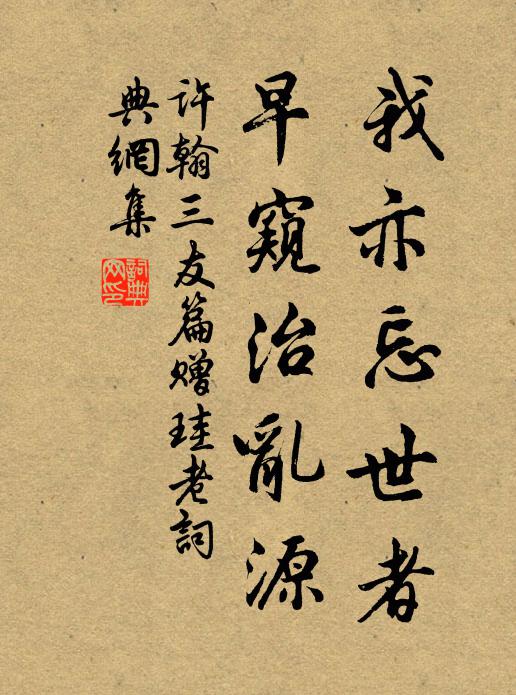 我亦忘世者
早窺治亂源
許翰三友篇贈珪老詞
典網集
詞典
网印